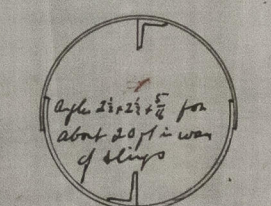 Angle 2½ × 2½ × 5/16 for
about 20 ft in way
of slings